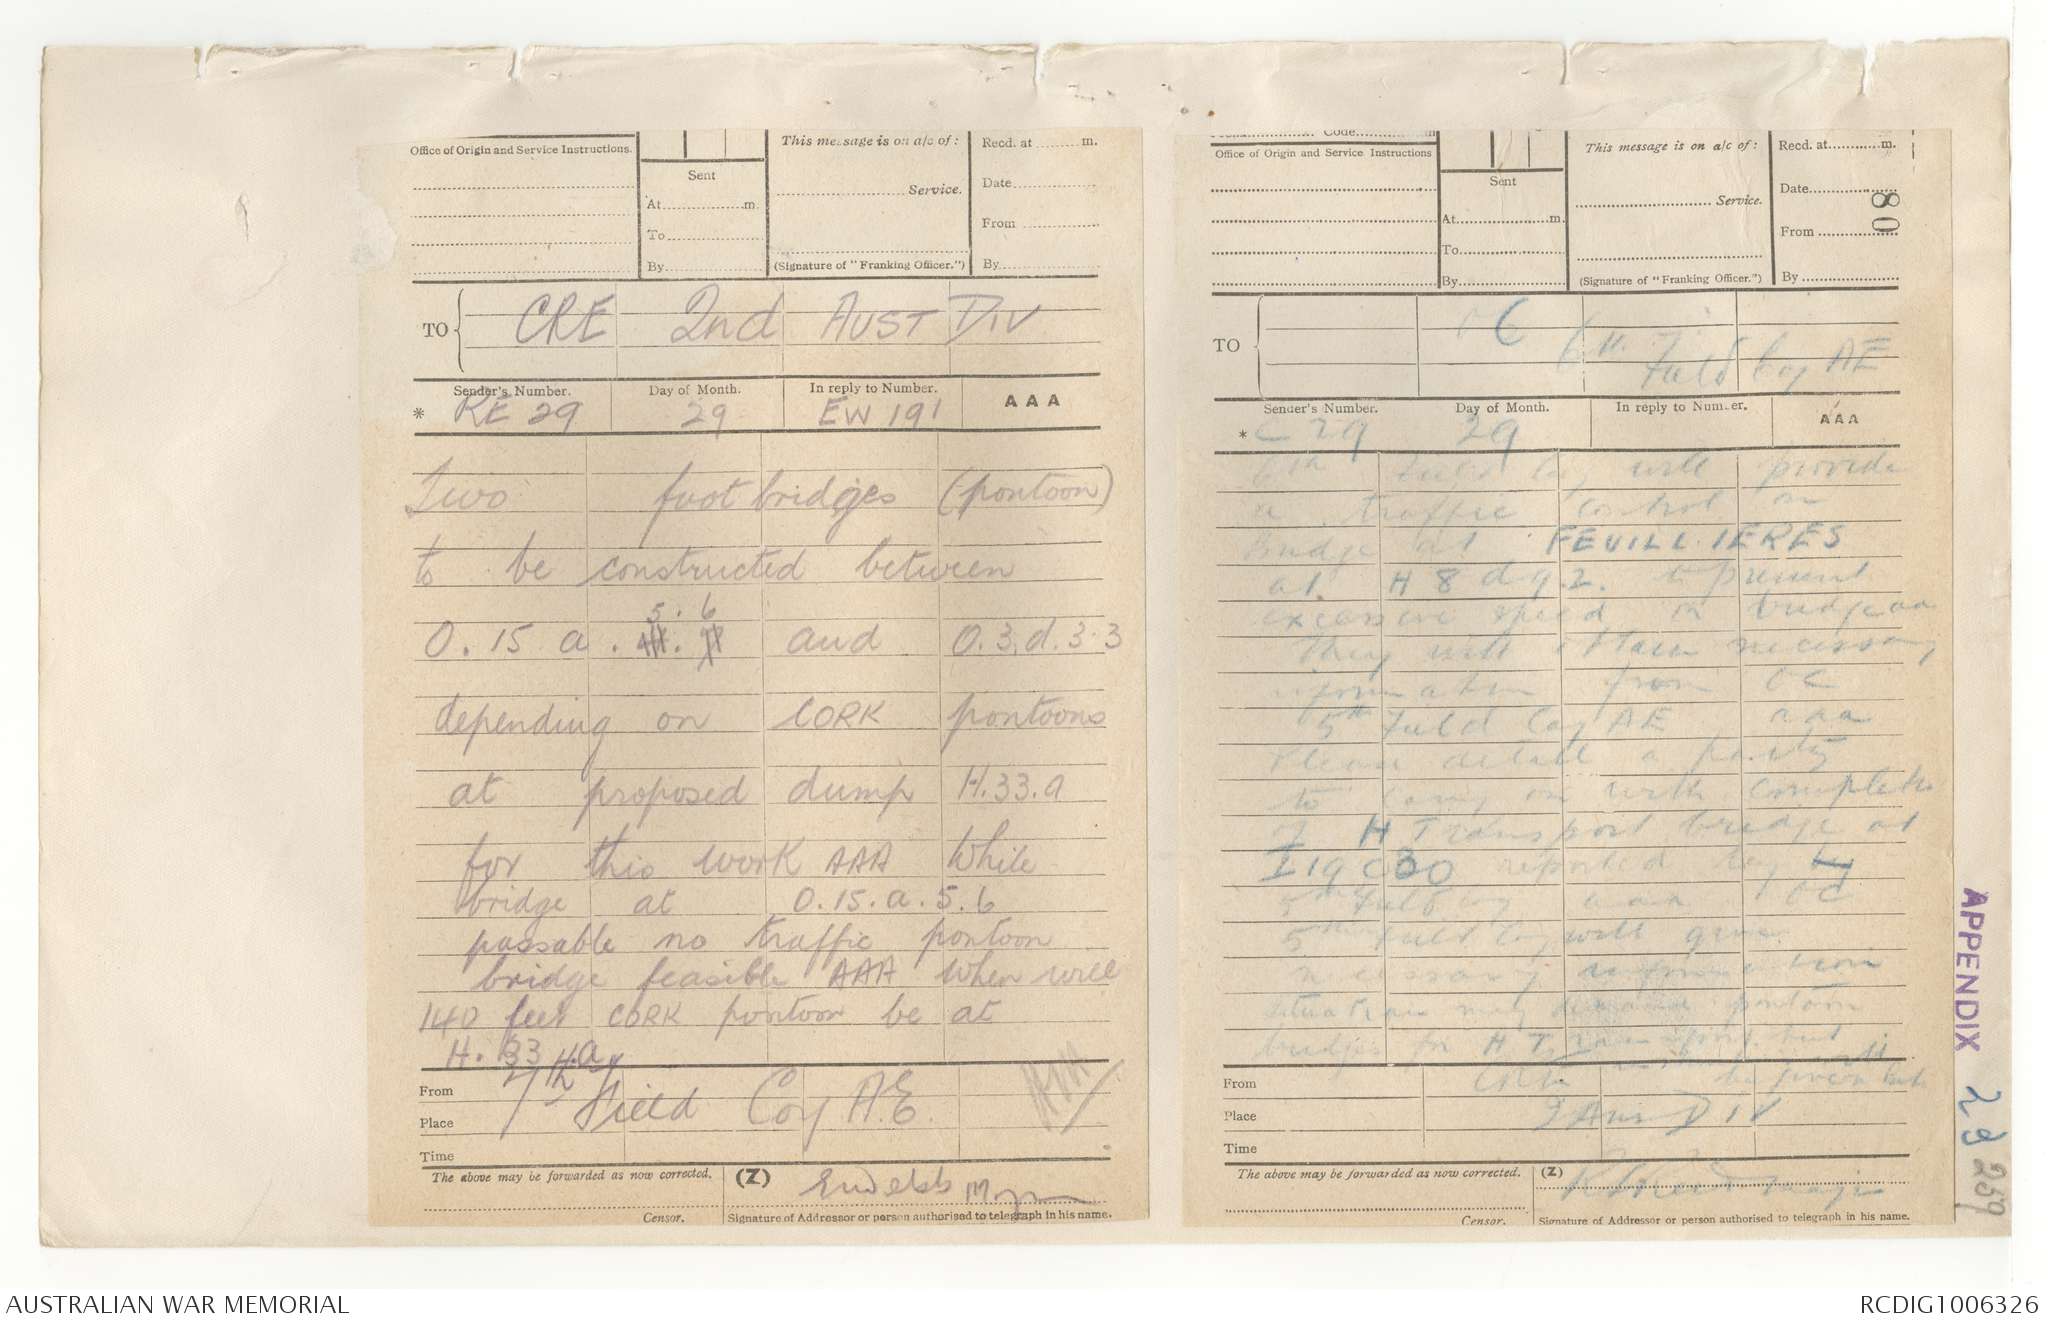 Office of Origin and Service Instructions.
Sent
At m.
To
By
This message is on a/c of:
Service.
(Signature of "Franking Officer.")
Recd. at m.
Date
From
By
TO
CRE 2nd AUST DIV
Sender's Number.
Day of Month.
In reply to Number.
AAA
* RE 29
29
EW 191
Two foot bridges (pontoon)
to be constructed between
5. 6
O. 15 a. and O.3.d.3.3
depending on CORK pontoons
at proposed dump H.33.a
for this work AAA While
bridge at O.15.a.5.6
passable no traffic pontoon
bridge feasible AAA When will
140 feet CORK pontoon be at
H. 33.a
From
Place
Time
7th Field Coy A.E.
The above may be forwarded as now corrected.
(Z)
Censor.
Signature of Addressor or person authorised to telegraph in his name.
Code m
Office of Origin and Service Instructions
Sent
At m.
To
By
This message is on a/c of:
Service.
(Signature of "Franking Officer.")
Recd. at m.
Date
From
By
80
TO
OC 6th Field Coy AE
Sender's Number.
Day of Month.
In reply to Number.
AAA
* C 29
29
6th Field Coy will provide
a traffic control on
Bridge at FEUILLIERES
at H 8 d 9.2. to prevent
excessive speed on bridge aaa
They will obtain necessary
information from OC
5th Field Coy AE aaa
Please detail a party
to carry on with completn
of H Transport bridge at
I 19 c 30 reported by
5th Field Coy aaa OC
5th Field Coy will give
necessary information
situation may demand pontoon
bridges for H Transport but
be given
From
Place
Time
CRE
2 Aus DIV
The above may be forwarded as now corrected.
(Z)
Censor.
Signature of Addressor or person authorised to telegraph in his name.
APPENDIX 29
259
AUSTRALIAN WAR MEMORIAL
RCDIG1006326